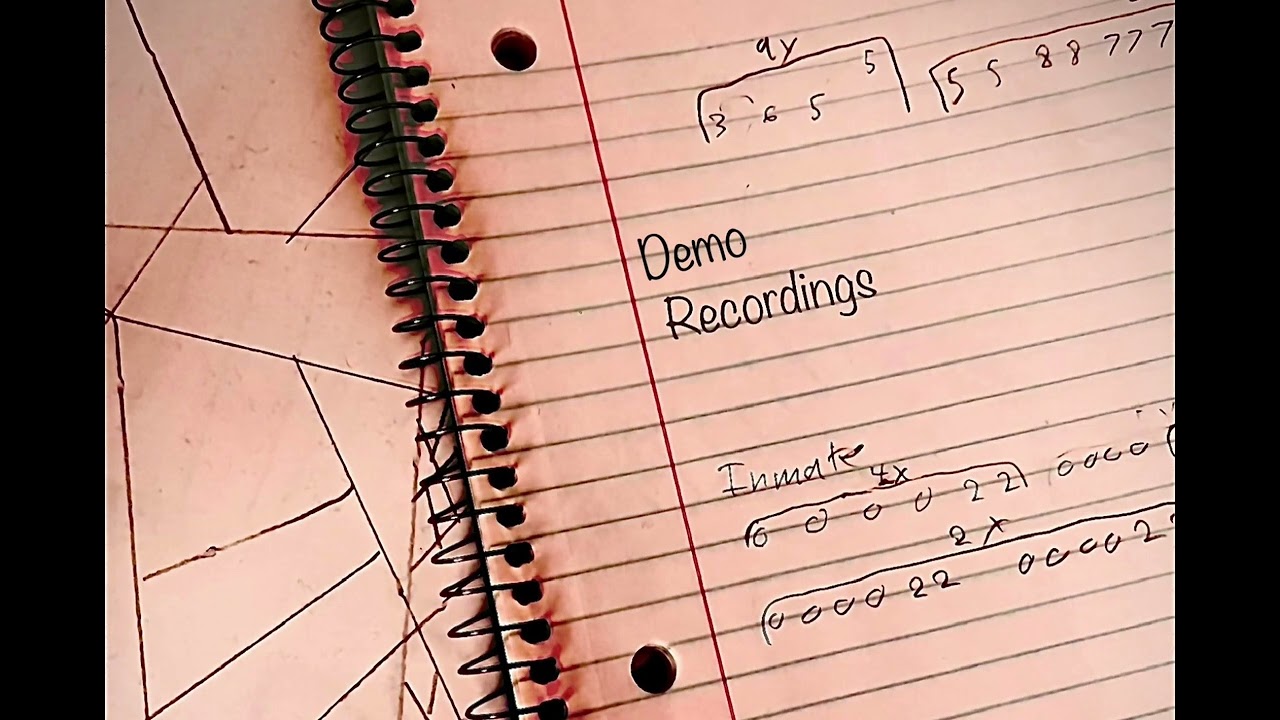 4x
3 6 5 5 5 5 8 8 7 7 7
Demo
Recordings
Inmate
4x
0 0 0 0 2 2 0 0 0 0
2x
0 0 0 0 2 2 0 0 0 0 2